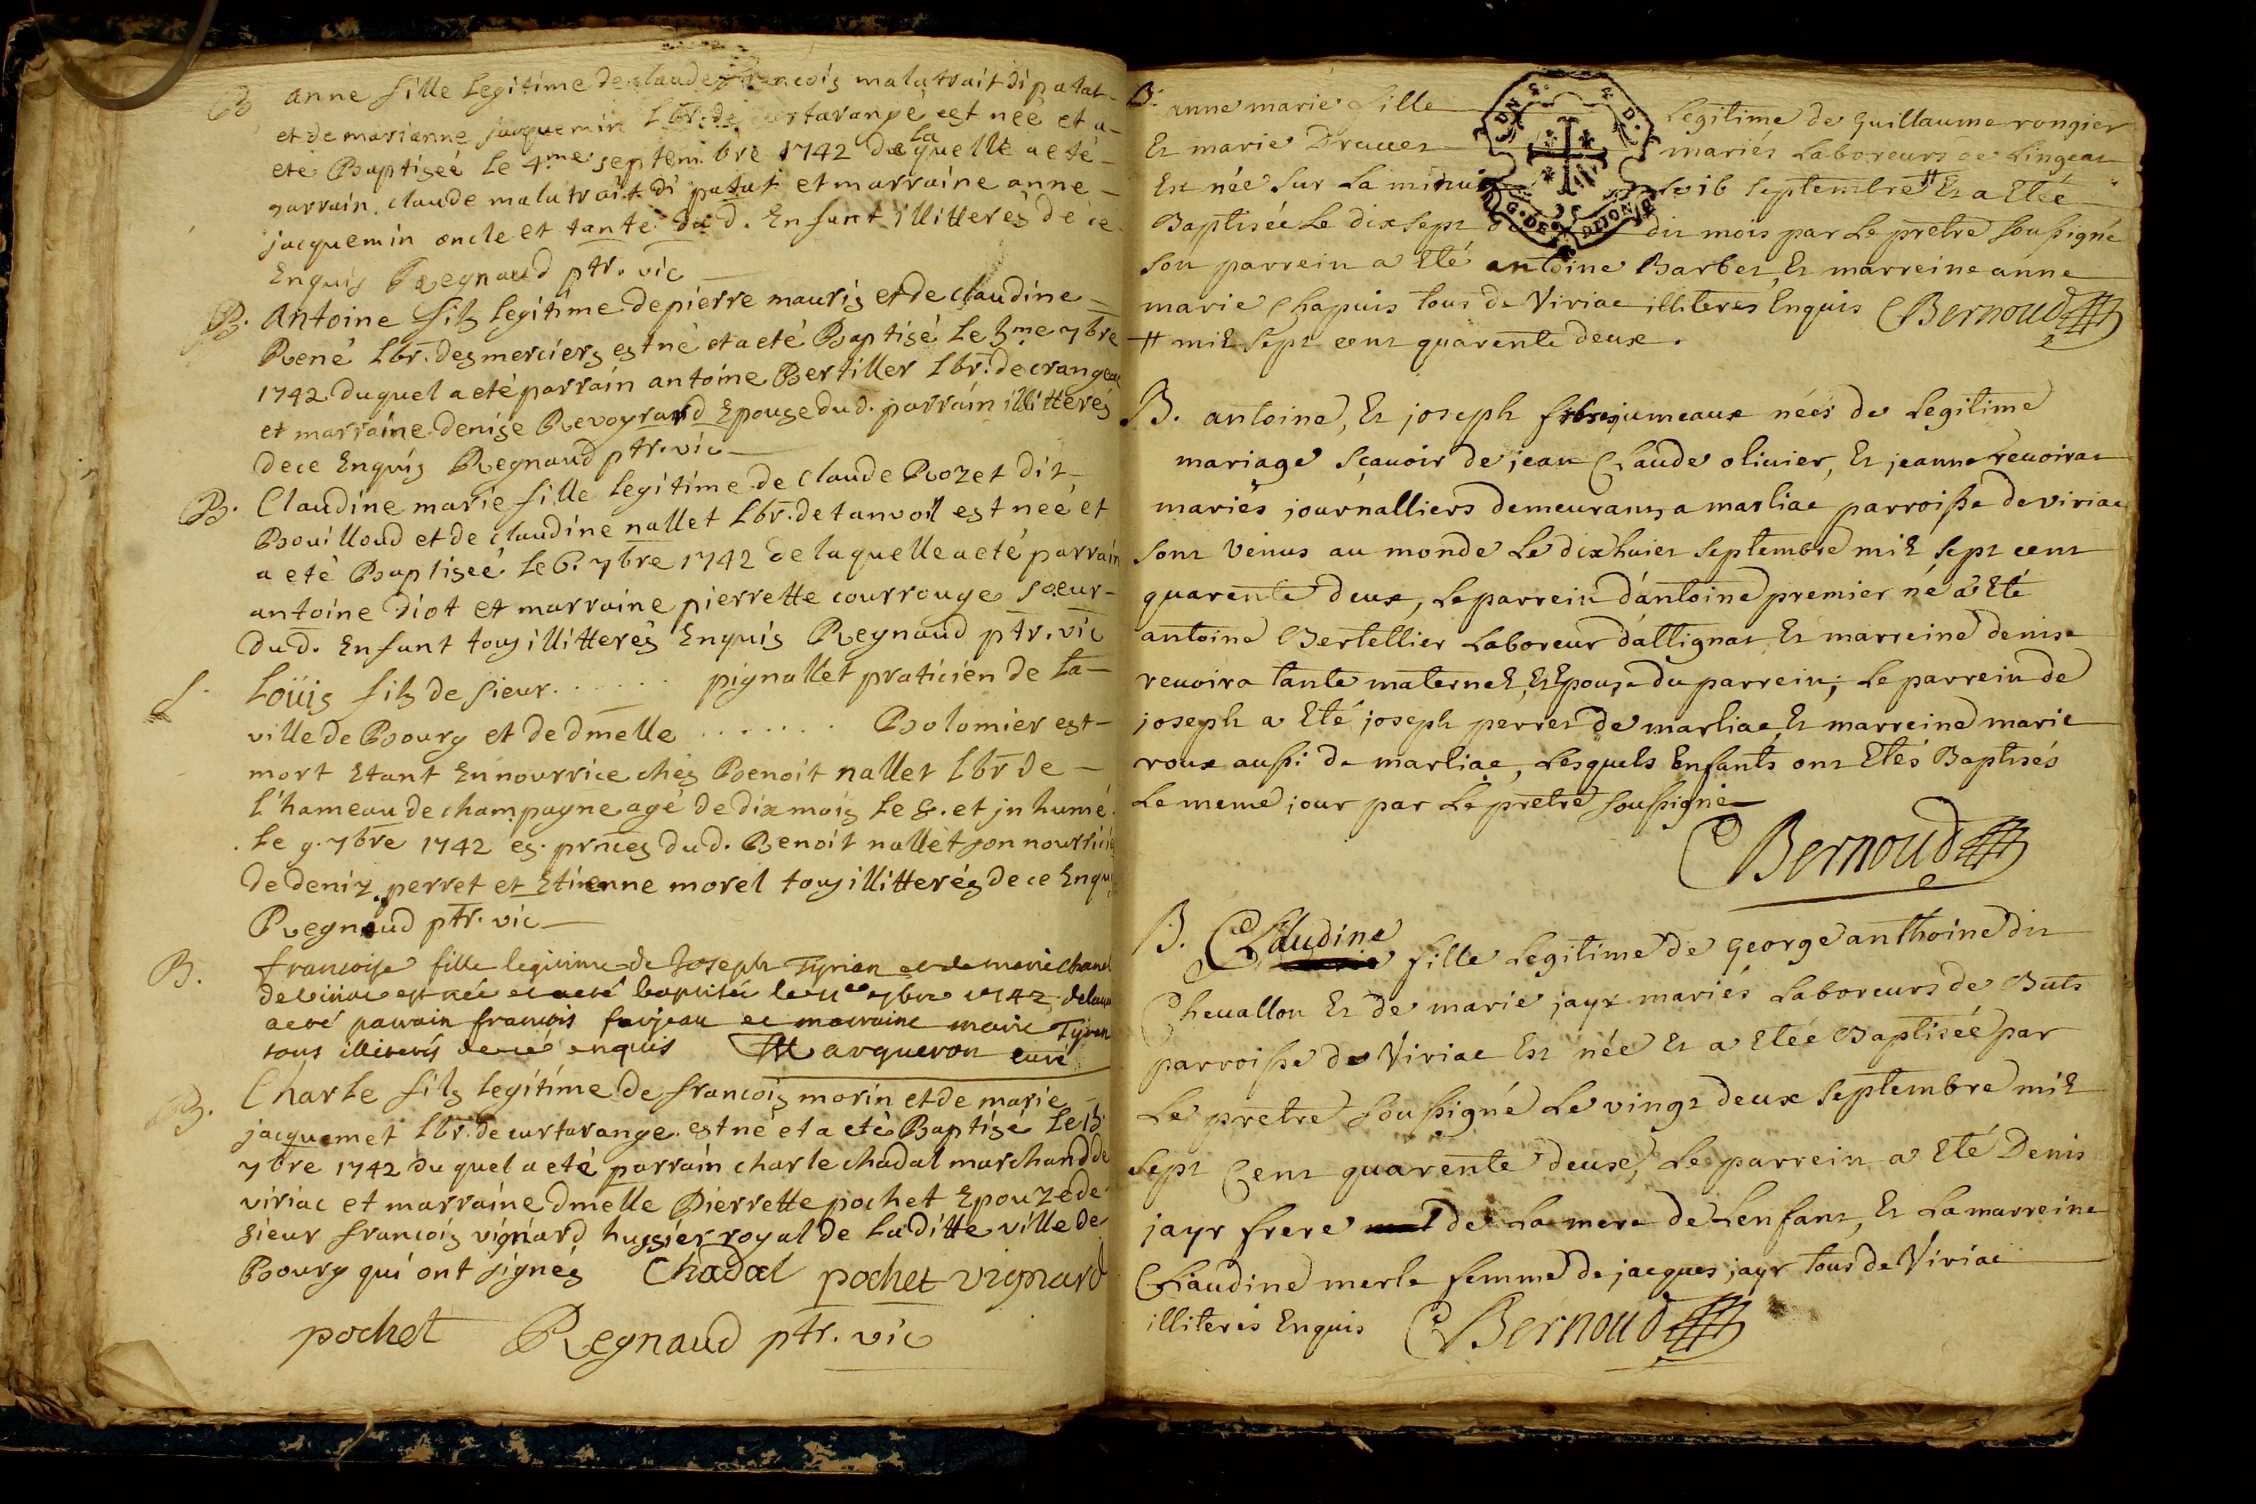 B anne fille legitime de claude francois malatrait di patat
et de marianne jacquemin lbr. de curtarange est neé et a
eté Baptiseé le 4.me septembre 1742 de la quelle a eté
parrain claude malatrait di patat et marraine anne
jacquemin oncle et tante dud. Enfant illitterés de ce
Enquis Regnaud ptr. vic
B. Antoine fils legitime de pierre mauris et de claudine
René lbr. des merciers est né et a eté Baptisé le 5me 7bre
1742 duquel a eté parrain antoine Bertiller lbr. de crangeac
et marraine denise Revoyrard Epouse dud. parrain illitterés
de ce Enquis Regnaud ptr. vic
B. Claudine marie fille legitime de Claude Rozet dit
Bouilloud et de claudine nallet lbr. de tanvol est neé et
a eté Baptiseé le 6. 7bre 1742 de laquelle a eté parrain
antoine diot et marraine pierrette courrouge soeur
dud. Enfant tous illitterés Enquis Regnaud ptr. vic
S. Loüis fils de sieur . . . . . . pignallet praticien de la
ville de Bourg et de dmelle . . . . . . Bolomier est
mort Etant En nourrice chés Benoit nallet lbr de
l'hameau de champagne agé de dix mois le 8. et jnhumé
le 9. 7bre 1742 es. prnces dud. Benoit nallet son nourricié
de deniz perret et Etienne morel tous illitterés de ce Enqui
Regnaud ptr. vic
B. francoise fille legitime de Joseph Tyrian et de marie chanel
de viriac est née et a eté baptisée le 11e 7bre 1742 delaq
a eté parrain francois farjeau et marraine marie Tyrian
tous illiterés de ce enquis Margueron curé
B. Charle fils legitime de francois morin et de marie
jacquemet lbr. de curtarange est né et a eté Baptisé le 13
7bre 1742 duquel a eté parrain charle chadal marchand de
viriac et marraine dmelle Pierrette pochet Epouze de
sieur francois vignard hussier royal de laditte ville de
Bourg qui ont signés Chadal pochet vignard
pochet Regnaud ptr. vic
B. anne marie fille legitime de guillaume rongier
Et marie Dravet mariés Laboreurs de Lingeat
Est née sur la minuit le 16 septembre # Et a Etée
Baptisée Le dix sept du mois par Le pretre soussigné
son parrein a Eté antoine Barbet Et marreine anne
marie Chapuis tous de Viriac illiterés Enquis Bernoud
# mil sept cent quarente deux.
G. DE DIJON
B. antoine, Et joseph freres jumeaux nées de Legitime
mariage sçavoir de jean Claude olivier, Et jeanne revoirat
mariés journalliers demeurants a marliac parroisse de viriac
sont venus au monde Le dixhuict septembre mil sept cent
quarente deux, Le parrein d'antoine premier né a Eté
antoine Bertellier Laboreur d'attignat Et marreine denise
revoira tante maternel, Et Epouse du parrein; Le parrein de
joseph a Eté joseph perret de marliac, Et marreine marie
roux aussi de marliac, Lesquels Enfants ont Etés Baptisés
Le meme jour par Le pretre soussigné
Bernoud
B. Claudine
fille Legitime de george anthoine dit
Chevallon Et de marie jayr mariés Laboreurs de Buts
parroisse de Viriac Est née Et a Etée Baptisée par
Le pretre soussigné Le vingt deux septembre mil
sept Cent quarente deux, Le parrein a Eté Denis
jayr frere de La mere de Lenfant, Et La marreine
Claudine merle femme de jacques jayr tous de Viriac
illiterés Enquis Bernoud